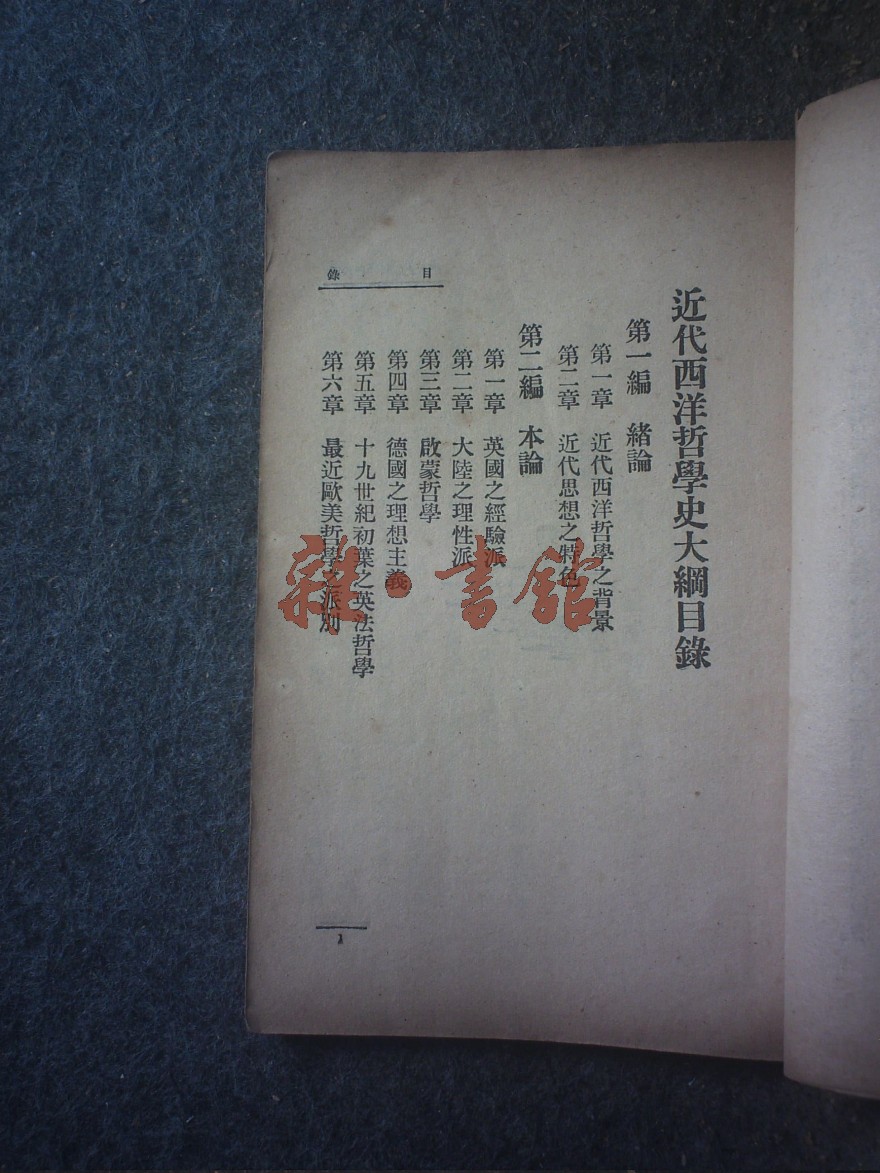 近代西洋哲學史大綱目錄
第一編 緒論
第一章 近代西洋哲學之背景
第二章 近代思想之特色
第二編 本論
第一章 英國之經驗派
第二章 大陸之理性派
第三章 啟蒙哲學
第四章 德國之理想主義
第五章 十九世紀初葉之英法哲學
第六章 最近歐美哲學之派別
目錄
雜·書館